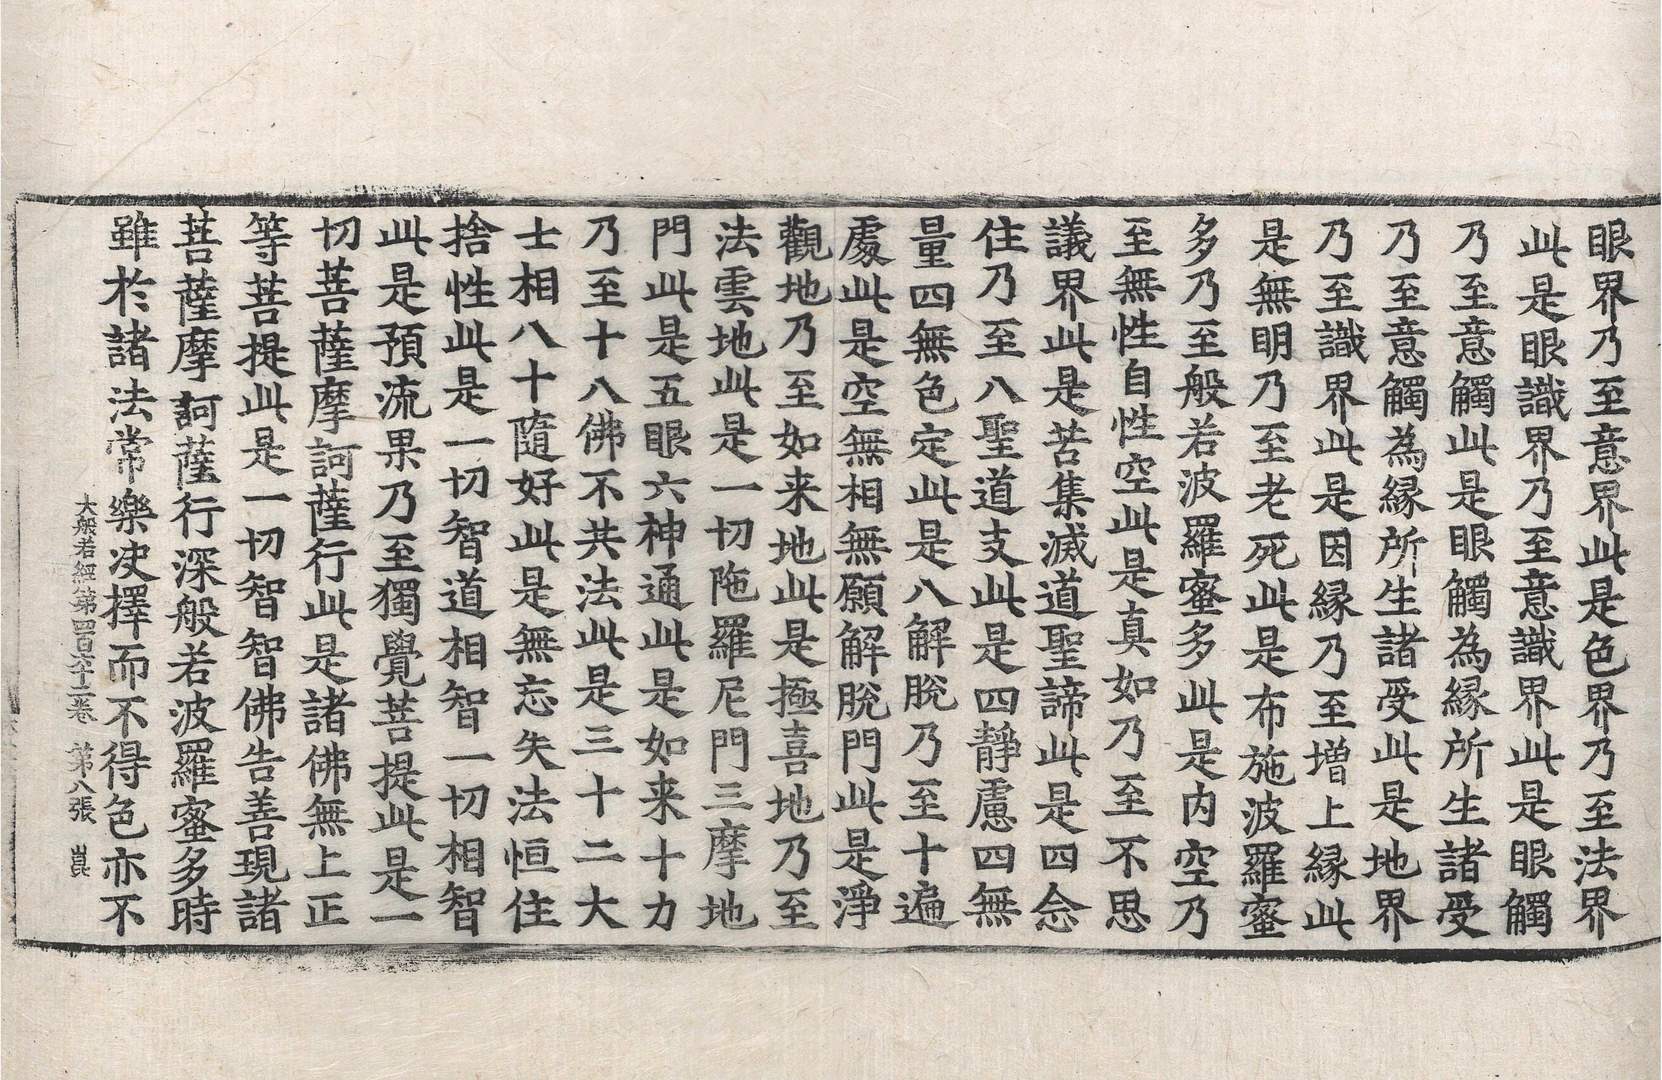 眼界乃至意界此是色界乃至法界
此是眼識界乃至意識界此是眼觸
乃至意觸此是眼觸為緣所生諸受
乃至意觸為緣所生諸受此是地界
乃至識界此是因緣乃至增上緣此
是無明乃至老死此是布施波羅蜜
多乃至般若波羅蜜多此是內空乃
至無性自性空此是真如乃至不思
議界此是苦集滅道聖諦此是四念
住乃至八聖道支此是四靜慮四無
量四無色定此是八解脫乃至十遍
處此是空無相無願解脫門此是淨
觀地乃至如来地此是極喜地乃至
法雲地此是一切陁羅尼門三摩地
門此是五眼六神通此是如来十力
乃至十八佛不共法此是三十二大
士相八十隨好此是無忘失法恒住
捨性此是一切智道相智一切相智
此是預流果乃至獨覺菩提此是一
切菩薩摩訶薩行此是諸佛無上正
等菩提此是一切智智佛告善現諸
菩薩摩訶薩行深般若波羅蜜多時
雖於諸法常樂決擇而不得色亦不
大般若經第四百六十二卷 第八張 崑